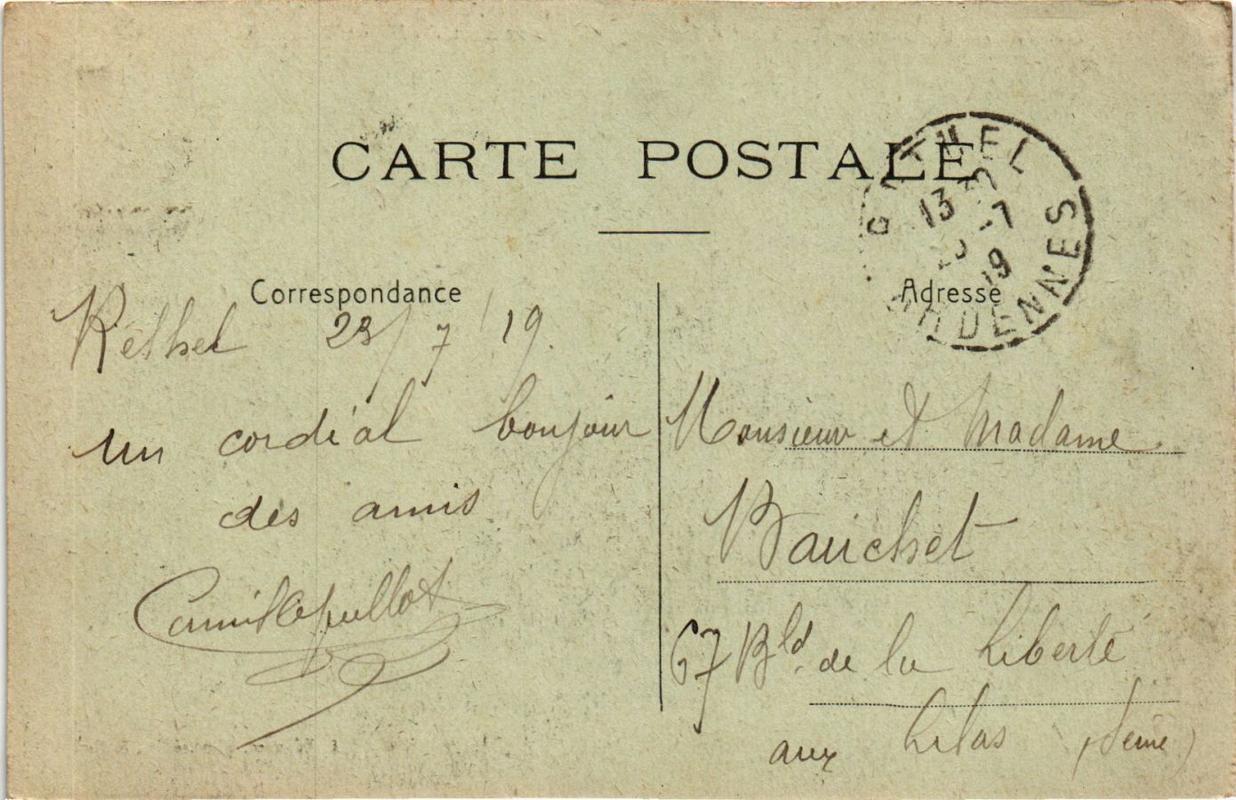 CARTE POSTALE
Correspondance
Rethel 23/7/19.
un cordial bonjour
des amis
Adresse
Monsieur et Madame
Bauchet
67 Bld. de la Liberté
aux Lilas (Seine)
13
-7
19
ARDENNES